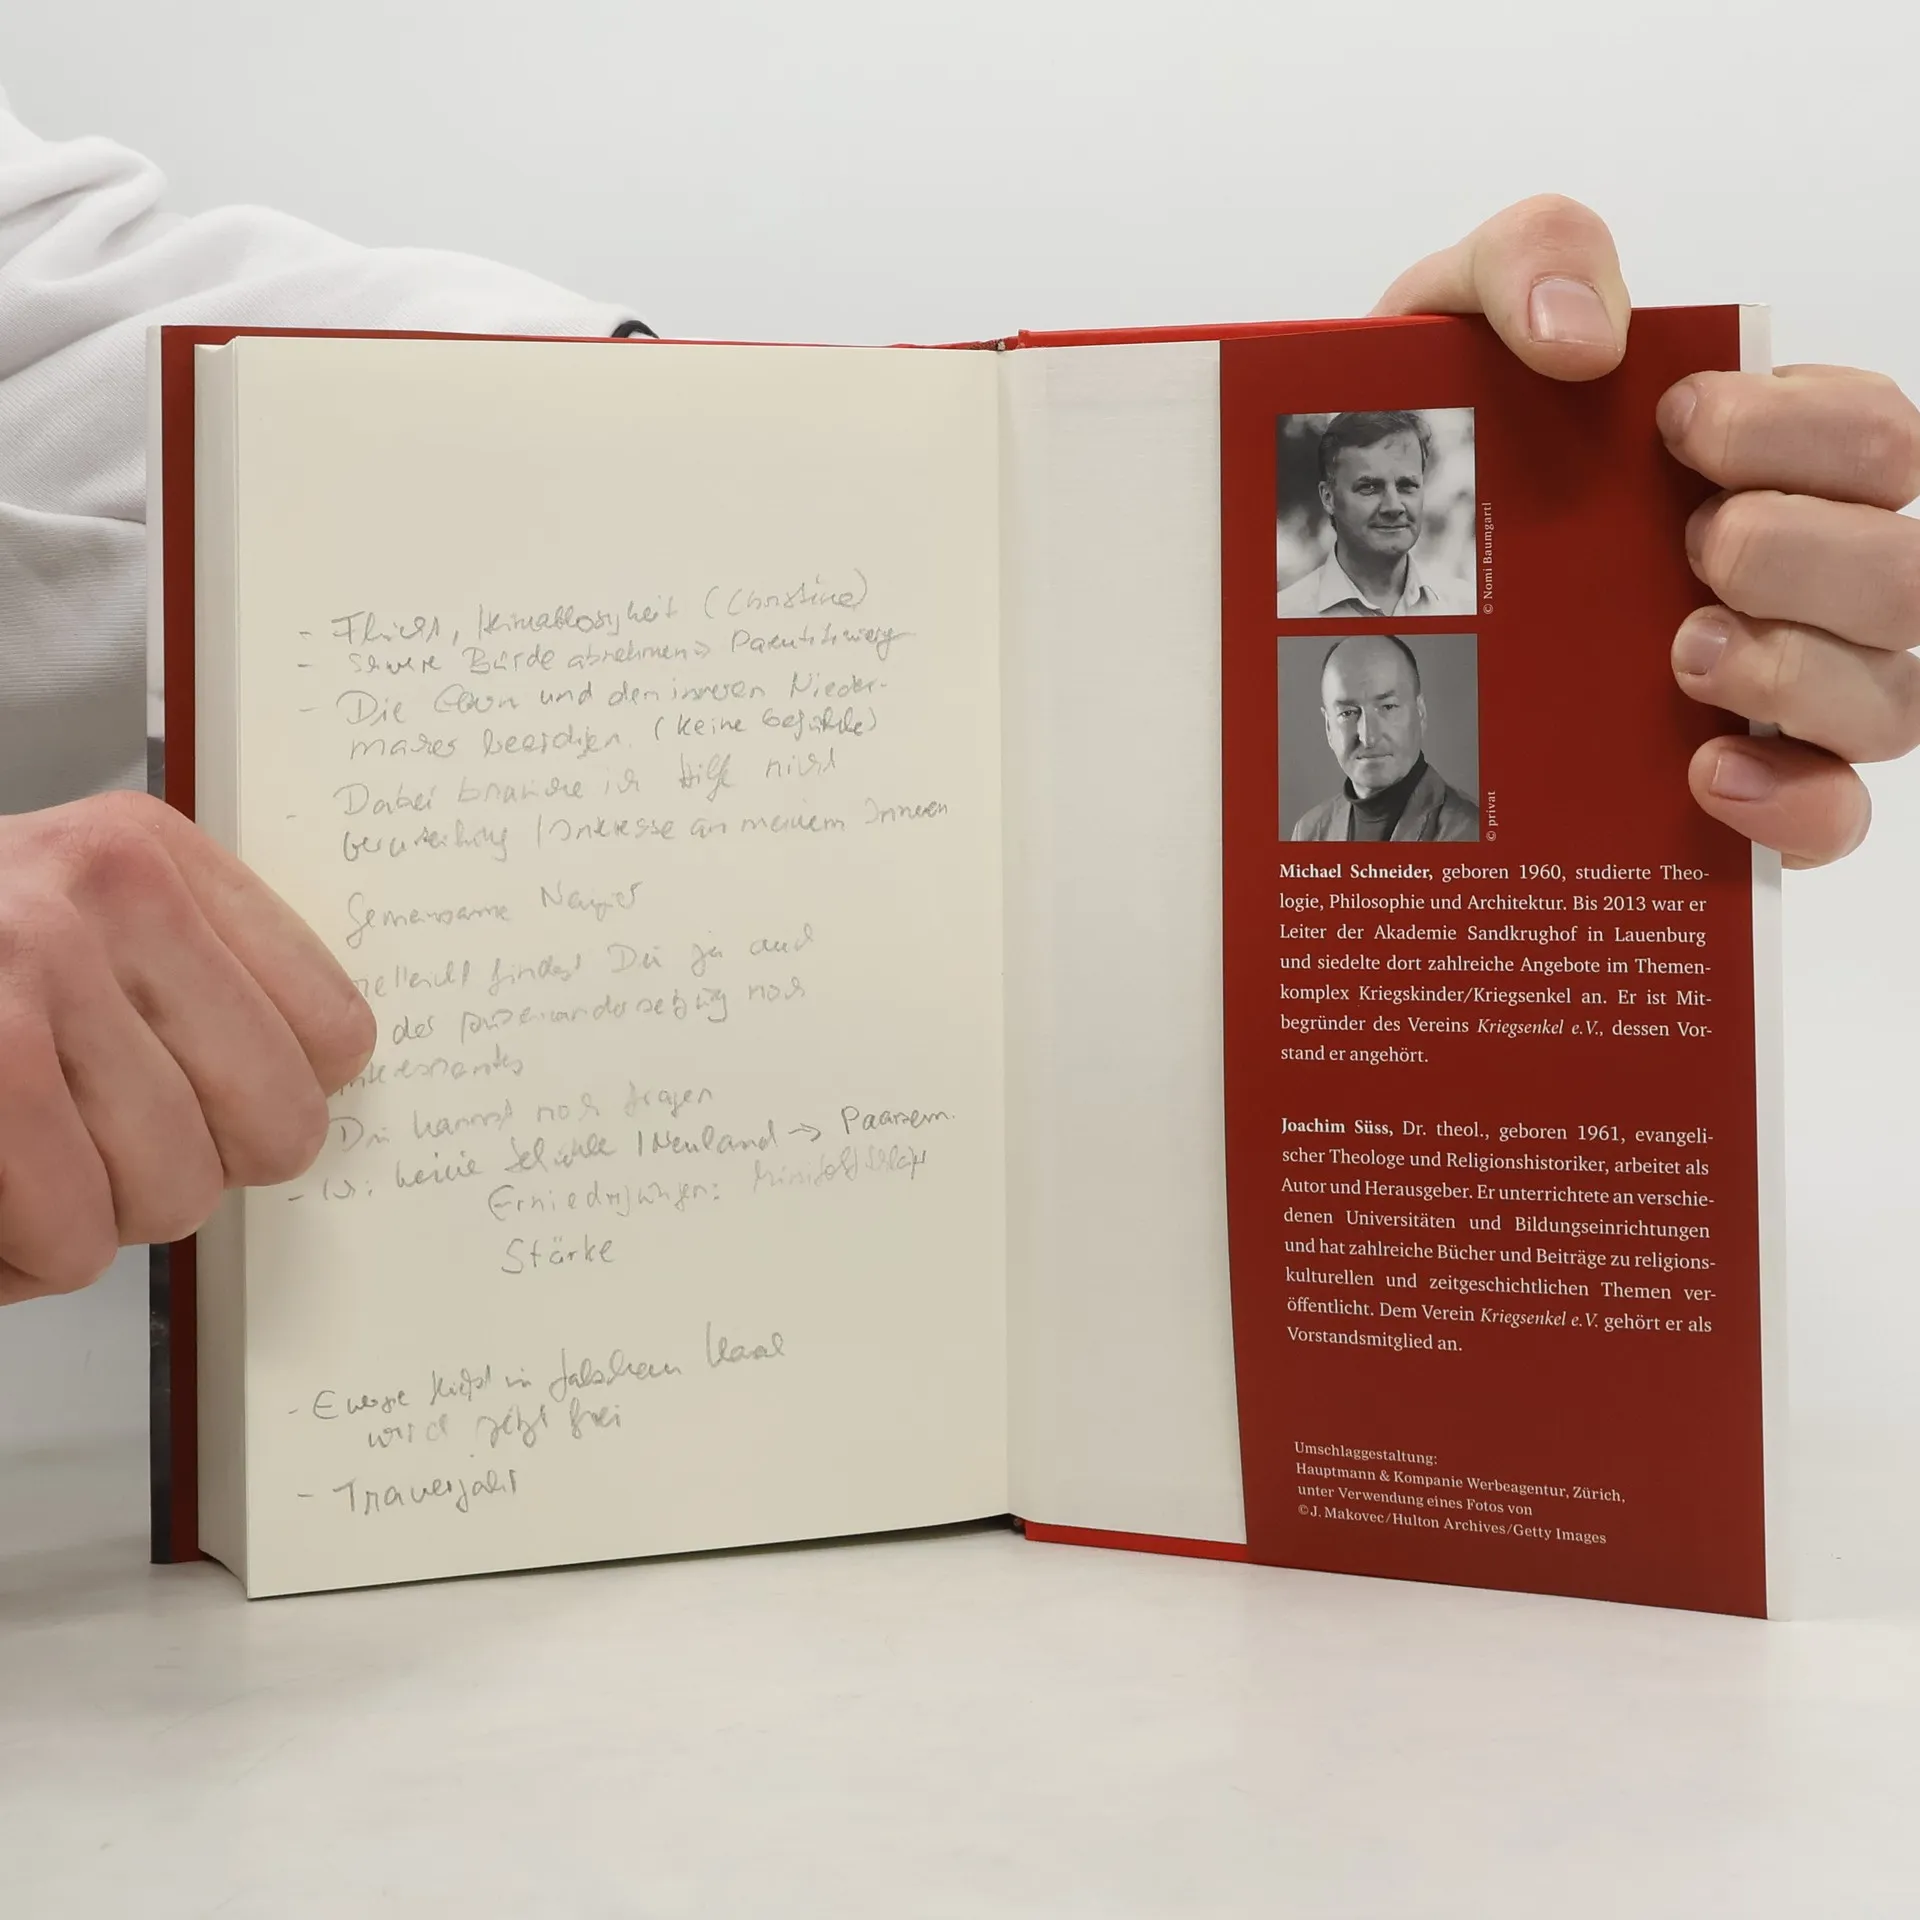 - Flucht, Heimatlosigkeit (Christine)
- schwere Bürde abnehmen →
- Die Eltern und den inneren Nieder-
macher beerdigen. (keine Gefühle)
- Dabei brauche ich Hilfe nicht
/ Interesse an meinem Inneren
Gemeinsame
vielleicht findest Du ja auch
der Auseinandersetzung noch
interessantes
Du kannst noch fragen
- Ich: keine / Neuland → Paarsem.
Erniedrigungen:
Stärke
- Energie fließt in falschen Kanal
wird jetzt frei
- Trauerjahr
© Nomi Baumgartl
© privat
Michael Schneider, geboren 1960, studierte Theo-
logie, Philosophie und Architektur. Bis 2013 war er
Leiter der Akademie Sandkrughof in Lauenburg
und siedelte dort zahlreiche Angebote im Themen-
komplex Kriegskinder/Kriegsenkel an. Er ist Mit-
begründer des Vereins Kriegsenkel e.V., dessen Vor-
stand er angehört.
Joachim Süss, Dr. theol., geboren 1961, evangeli-
scher Theologe und Religionshistoriker, arbeitet als
Autor und Herausgeber. Er unterrichtete an verschie-
denen Universitäten und Bildungseinrichtungen
und hat zahlreiche Bücher und Beiträge zu religions-
kulturellen und zeitgeschichtlichen Themen ver-
öffentlicht. Dem Verein Kriegsenkel e.V. gehört er als
Vorstandsmitglied an.
Umschlaggestaltung:
Hauptmann & Kompanie Werbeagentur, Zürich,
unter Verwendung eines Fotos von
© J. Makovec/Hulton Archives/Getty Images